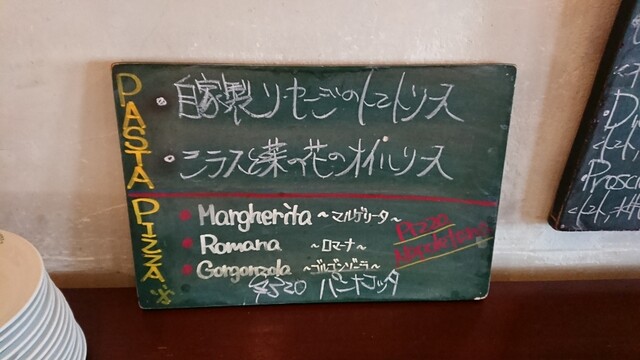 PASTA
・自家製ソーセージのトマトソース
・シラスと菜の花のオイルソース
PIZZA
Margherita ~マルゲリータ~
Romana ~ロマーナ~
Gorgonzola ~ゴルゴンゾーラ~
Pizza
パンナコッタ
Prosc